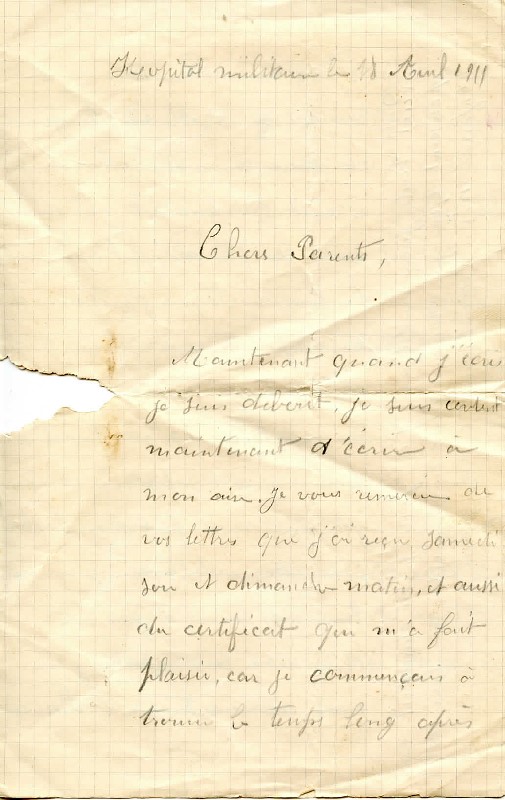 Hopital militaire le 18 Avril 1911
Chers Parents,
Maintenant quand j'écris
je suis debout, je suis content
maintenant d'écrire à
mon aise. Je vous remercie de
vos lettres que j'ai reçu samedi
soir et dimanche matin, et aussi
du certificat qui m'a fait
plaisir, car je commençais à
trouver le temps long après